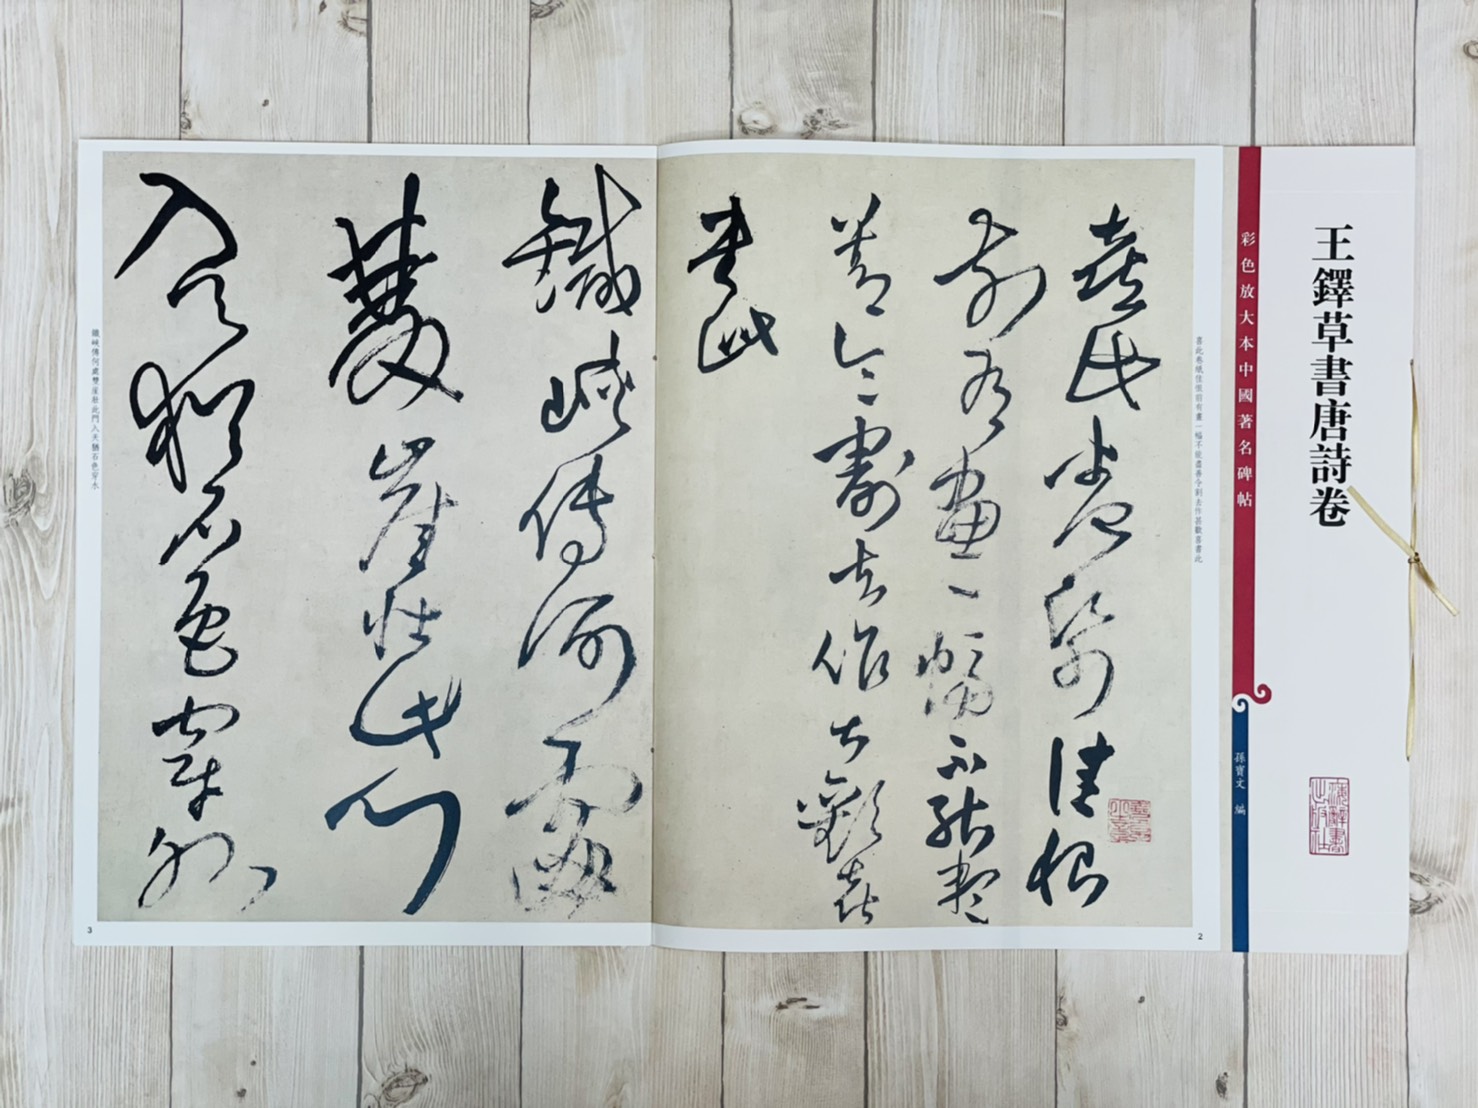 王鐸草書唐詩卷
彩色放大本中國著名碑帖
孫寶文 編
書此卷紙佳恨前有畫一幅不能盡善今割去作甚歡喜書此
書此卷紙佳恨
前有畫一幅不能盡
善今割去作甚歡喜
書此
2
鐵峽傳何處
雙崖壯此門
入天猶石色穿水
鐵峽傳何處雙崖壯此門入天猶石色穿水
3